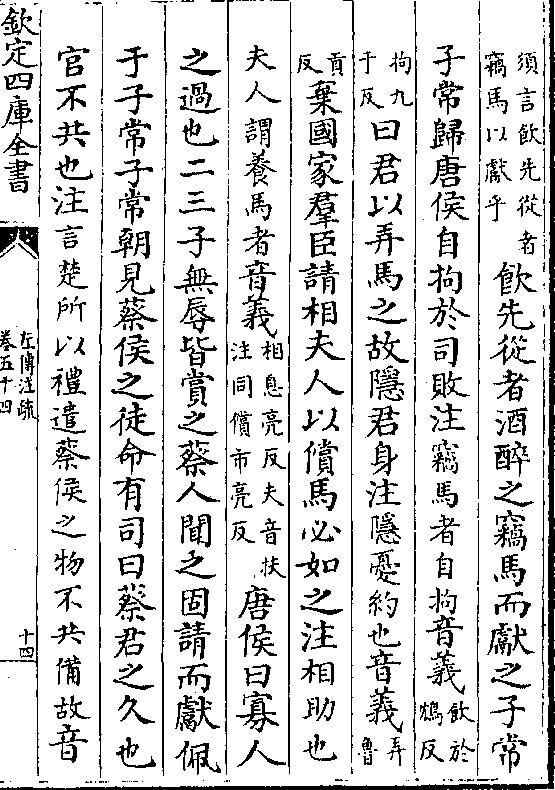 須言飲先從者竊馬以獻乎飲先從者酒醉之竊馬而獻之子常
子常歸唐侯自拘於司敗注竊馬者自拘音義飲於鴆反
拘九于反曰君以弄馬之故隱君身注隱憂約也音義弄魯
貢反棄國家羣臣請相夫人以償馬必如之注相助也
夫人謂養馬者音義相息亮反夫音扶注同償市亮反唐侯曰寡人
之過也二三子無辱皆賞之蔡人聞之固請而獻佩
于子常子常朝見蔡侯之徒命有司曰蔡君之久也
官不共也注言楚所以禮遣蔡侯之物不共備故音
欽定四庫全書
左傳注疏
卷五十四
十四